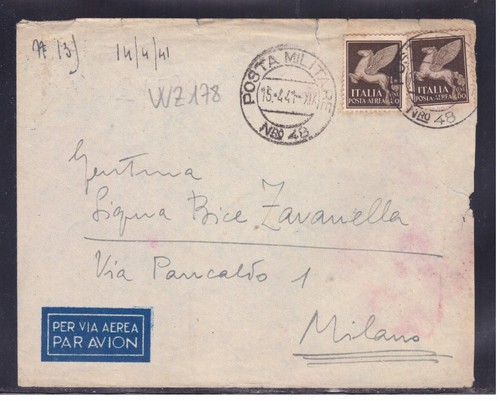 14/4/41
WZ178
POSTA MILITARE
15.4.41
Nro 48
ITALIA
POSTA-AEREA
ITALIA
POSTA-AEREA
Nro 48
Gentma
Signra Bice Zavanella
Via Pancaldo 1
Milano
PER VIA AEREA
PAR AVION